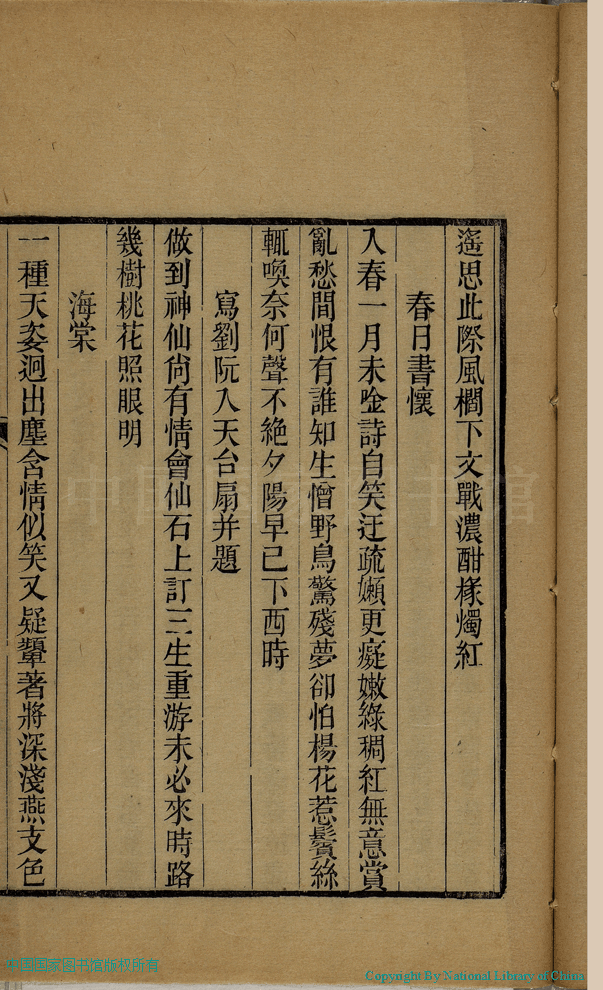 遙思此際風櫚下文戰濃酣椽燭紅
春日書懷
入春一月未唫詩自笑迂疏嬾更癡嫩綠稠紅無意賞
亂愁閒恨有誰知生憎野鳥驚殘夢卻怕楊花惹鬢絲
輒喚奈何聲不絕夕陽早已下西時
寫劉阮入天台扇并題
做到神仙尙有情會仙石上訂三生重游未必來時路
幾樹桃花照眼明
海棠
一種天姿迥出塵含情似笑又疑顰著將深淺燕支色
中国国家图书馆
中国国家图书馆版权所有
Copyright By National Library of China